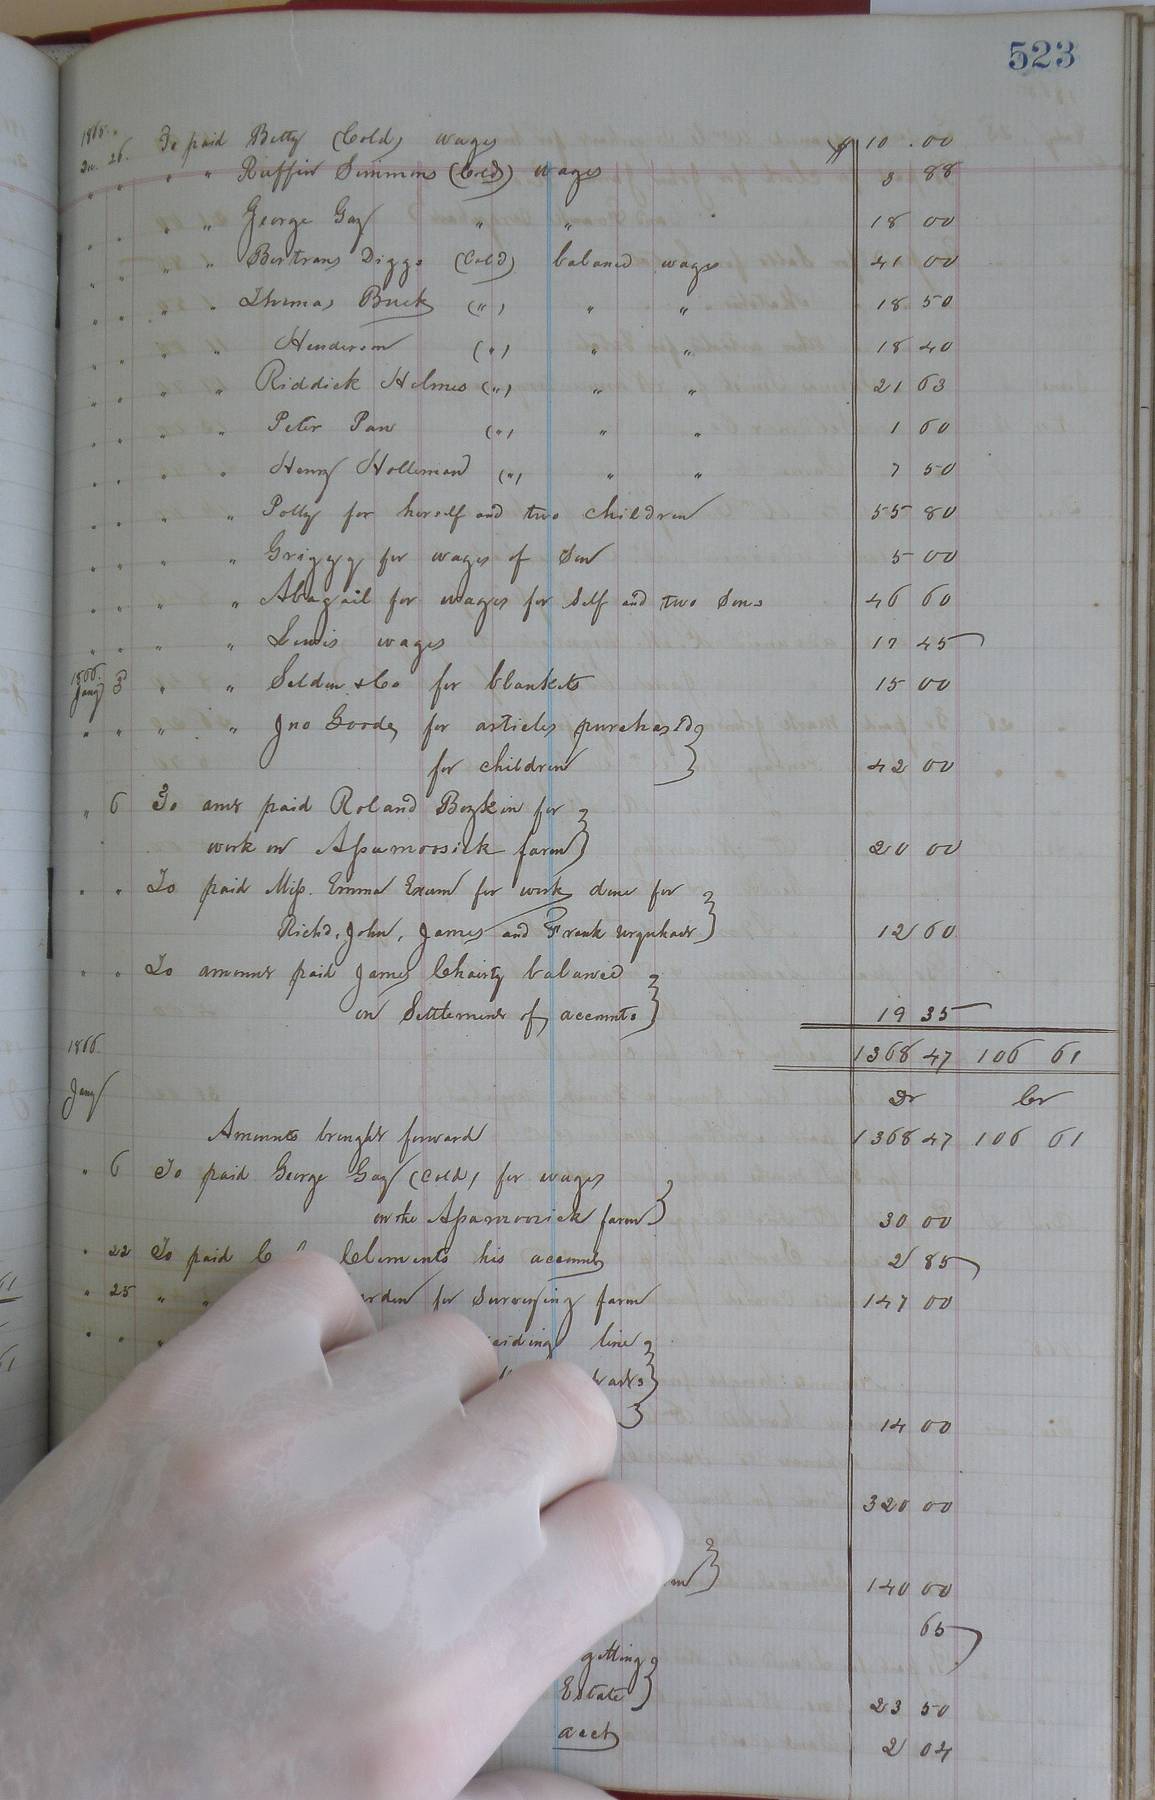 523
1865. Dec. 26. To paid Betty (Cold) wages $ 10.00
" " " " Ruffin Simmons (Cold) wages 3 88
" " " " George Gay " " 18 00
" " " " Bertrans Diggs (Cold) balance wages 41 00
" " " " Thomas Buck (") " " 18 50
" " " " Henderson (") " " 18 40
" " " " Riddick Holmes (") " " 21 63
" " " " Peter Parr (") " " 1 60
" " " " Henry Holleman (") " " 7 50
" " " " Polly for herself and two children 55 80
" " " " Griggs for wages of Son 5 00
" " " " Abagail for wages for self and two Sons 46 60
" " " " Lewis wages 17 45
1866. Jany 3d " " Selden & Co for blankets 15 00
" " " " Jno Goode, for articles purchasd
for children 42 00
" 6 To amt paid Roland Boykin for
work on Apamoosick farm 20 00
" " To paid Miss. Emma Exum for work done for
Richd, John, James and Frank Urquhart 12 60
" " To amount paid James Charity balance
on Settlement of accounts 19 35
1866. 1368 47 106 61
Jany Dr Cr
Amounts brought forward 1368 47 106 61
" 6 To paid George Gay (Cold) for wages
on the Apamoosick farm 30 00
" 22 To paid Clements his account 2 85
" 25 " " for Surveying farm 147 00
" " line
14 00
320 00
140 00
65
getting
Estate 23 50
acct 2 04